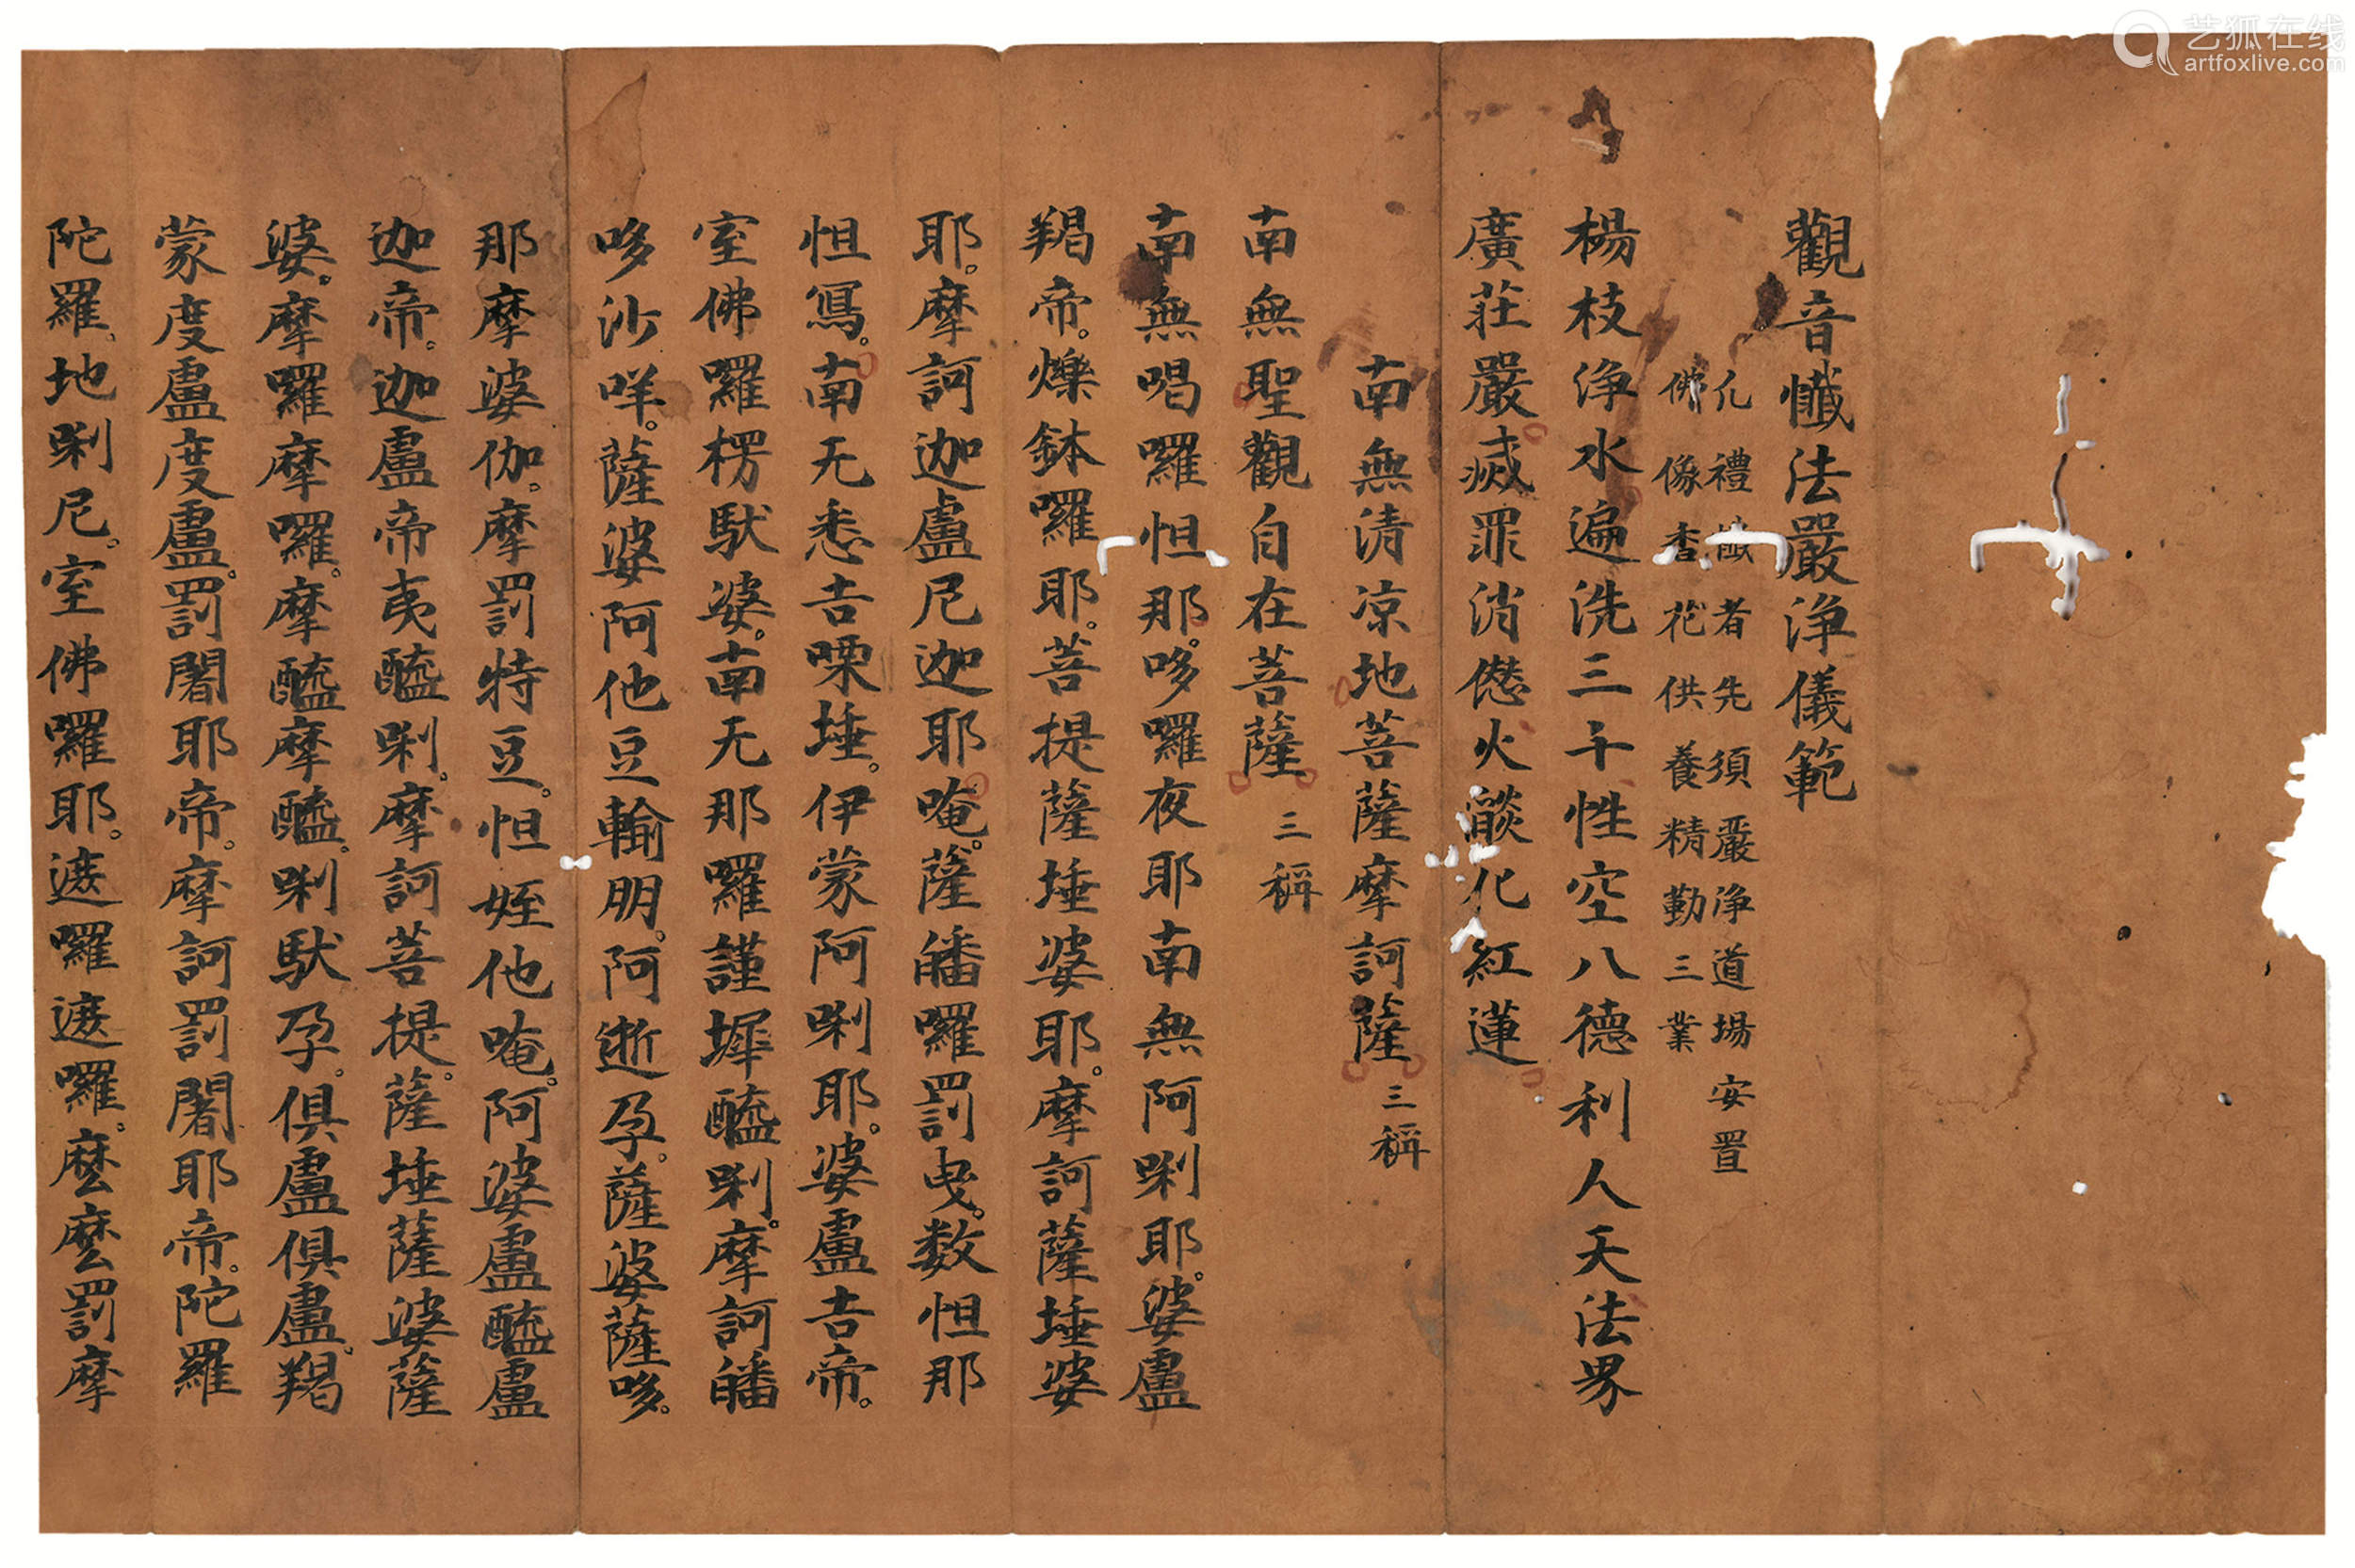 觀音懺法嚴淨儀範
凡禮懺者先須嚴淨道場安置
佛像香花供養精勤三業
楊枝淨水遍洗三千性空八德利人天法界
廣莊嚴滅罪消愆火燄化紅蓮
南無清凉地菩薩摩訶薩三稱
南無聖觀自在菩薩三稱
南無喝囉怛那。哆囉夜耶南無阿唎耶。婆盧
羯帝。爍鉢囉耶。菩提薩埵婆耶。摩訶薩埵婆
耶。摩訶迦盧尼迦耶唵。薩皤囉罰曳。数怛那
怛寫。南无悉吉㗚埵。伊蒙阿唎耶。婆盧吉帝。
室佛囉楞馱婆。南无那囉謹墀醯唎。摩訶皤
哆沙咩。薩婆阿他豆輸朋。阿逝孕。薩婆薩哆。
那摩婆伽。摩罰特豆。怛姪他唵。阿婆盧醯盧
迦帝。迦盧帝夷醯唎。摩訶菩提。薩埵薩婆薩
婆。摩囉摩囉。摩醯摩醯。唎馱孕。俱盧俱盧。羯
蒙度盧度盧。罰闍耶帝。摩訶罰闍耶帝。陀羅
陀羅。地唎尼。室佛囉耶。遮囉遮囉。麼麼罰摩
艺狐在线
artfoxlive.com